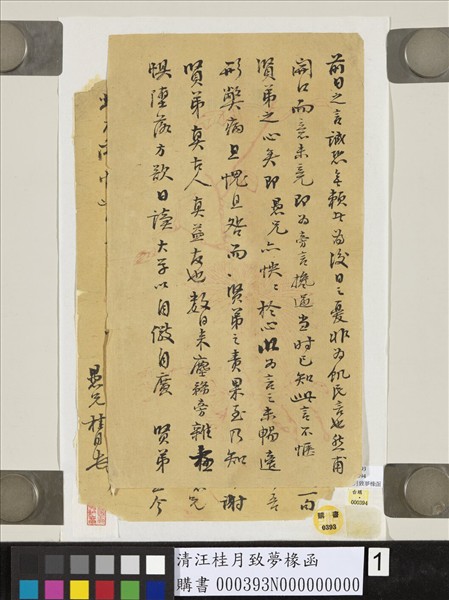 前日之言誠恐無賴此為後日之憂非為飢民言也然甫
開口而意未竟即為旁言攙過當時已知此言不愜
賢弟之心矣即愚兄亦怏〻於心此為言之未暢遂
形弊病且愧且咎而賢弟之責果至乃知
賢弟真古人真益友也數日來塵務旁雜極
惧墮落方欲日讀大字以自儆自廣 賢弟
愚兄桂月
購書
0393
000394
清汪桂月致夢橡函
購書 000393N000000000
1